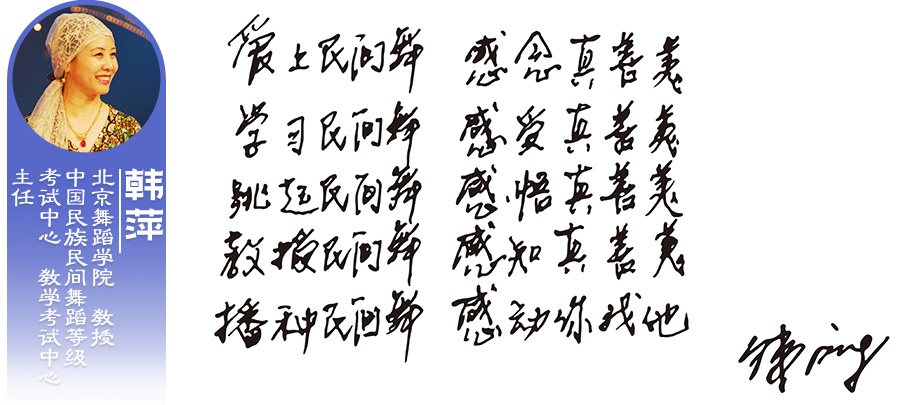 韩萍
北京舞蹈学院 教授
中国民族民间舞蹈等级
考试中心 教学考试中心
主任
爱上民间舞 感念真善美
学习民间舞 感受真善美
跳起民间舞 感悟真善美
教授民间舞 感知真善美
播种民间舞 感动你我他